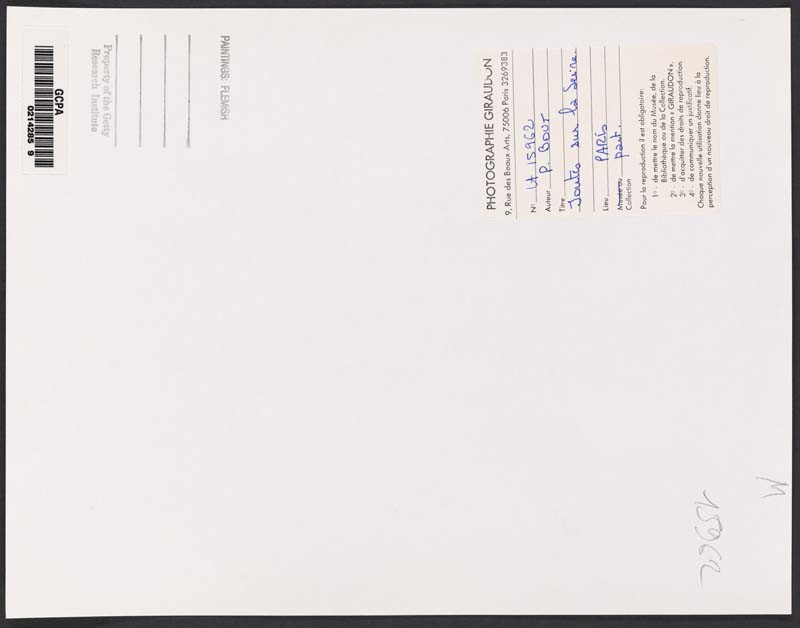 GCPA
0214285 9
Property of the Getty
Research Institute
PAINTINGS: FLEMISH
PHOTOGRAPHIE GIRAUDON
9, Rue des Beaux Arts, 75006 Paris 3269383
N° LA 15962
Auteur P. BOUT
Titre
Joutes sur la Seine.
Lieu PARIS
Musée ou part.
Collection
Pour la reproduction il est obligatoire:
1° - de mettre le nom du Musée, de la
Bibliothèque ou de la Collection.
2° - de mettre la mention « GIRAUDON ».
3° - d'acquitter des droits de reproduction.
4° - de communiquer un justificatif.
Chaque nouvelle utilisation donne lieu à la
perception d'un nouveau droit de reproduction.
M
15962